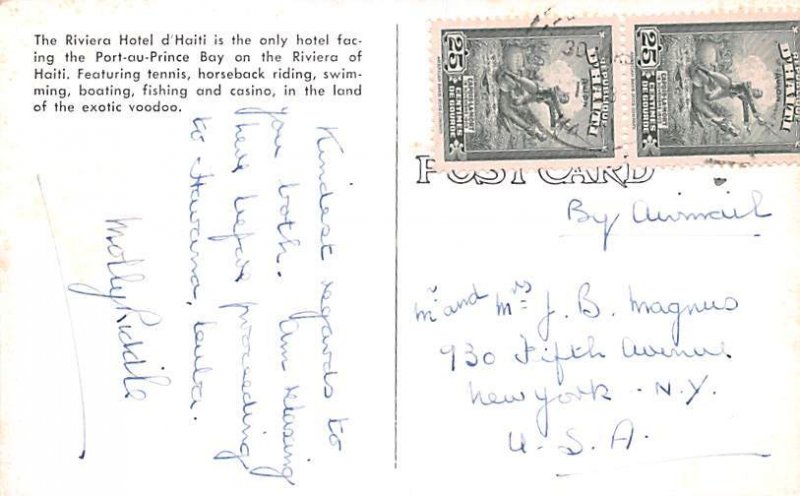 The Riviera Hotel d'Haiti is the only hotel fac-
ing the Port-au-Prince Bay on the Riviera of
Haiti. Featuring tennis, horseback riding, swim-
ming, boating, fishing and casino, in the land
of the exotic voodoo.
Kindest regards to
you both. Am relaxing
here before proceeding
to Havana, Cuba.
Molly Riddle
25
REPUBLIQUE
D'HAITI
CENTIMES
DE GOURDE
25
D'HAITI
CENTIMES
DE GOURDE
POST CARD
By Airmail
Mr and Mrs J. B. Magnus
930 Fifth Avenue
New York - N.Y.
U.S.A.